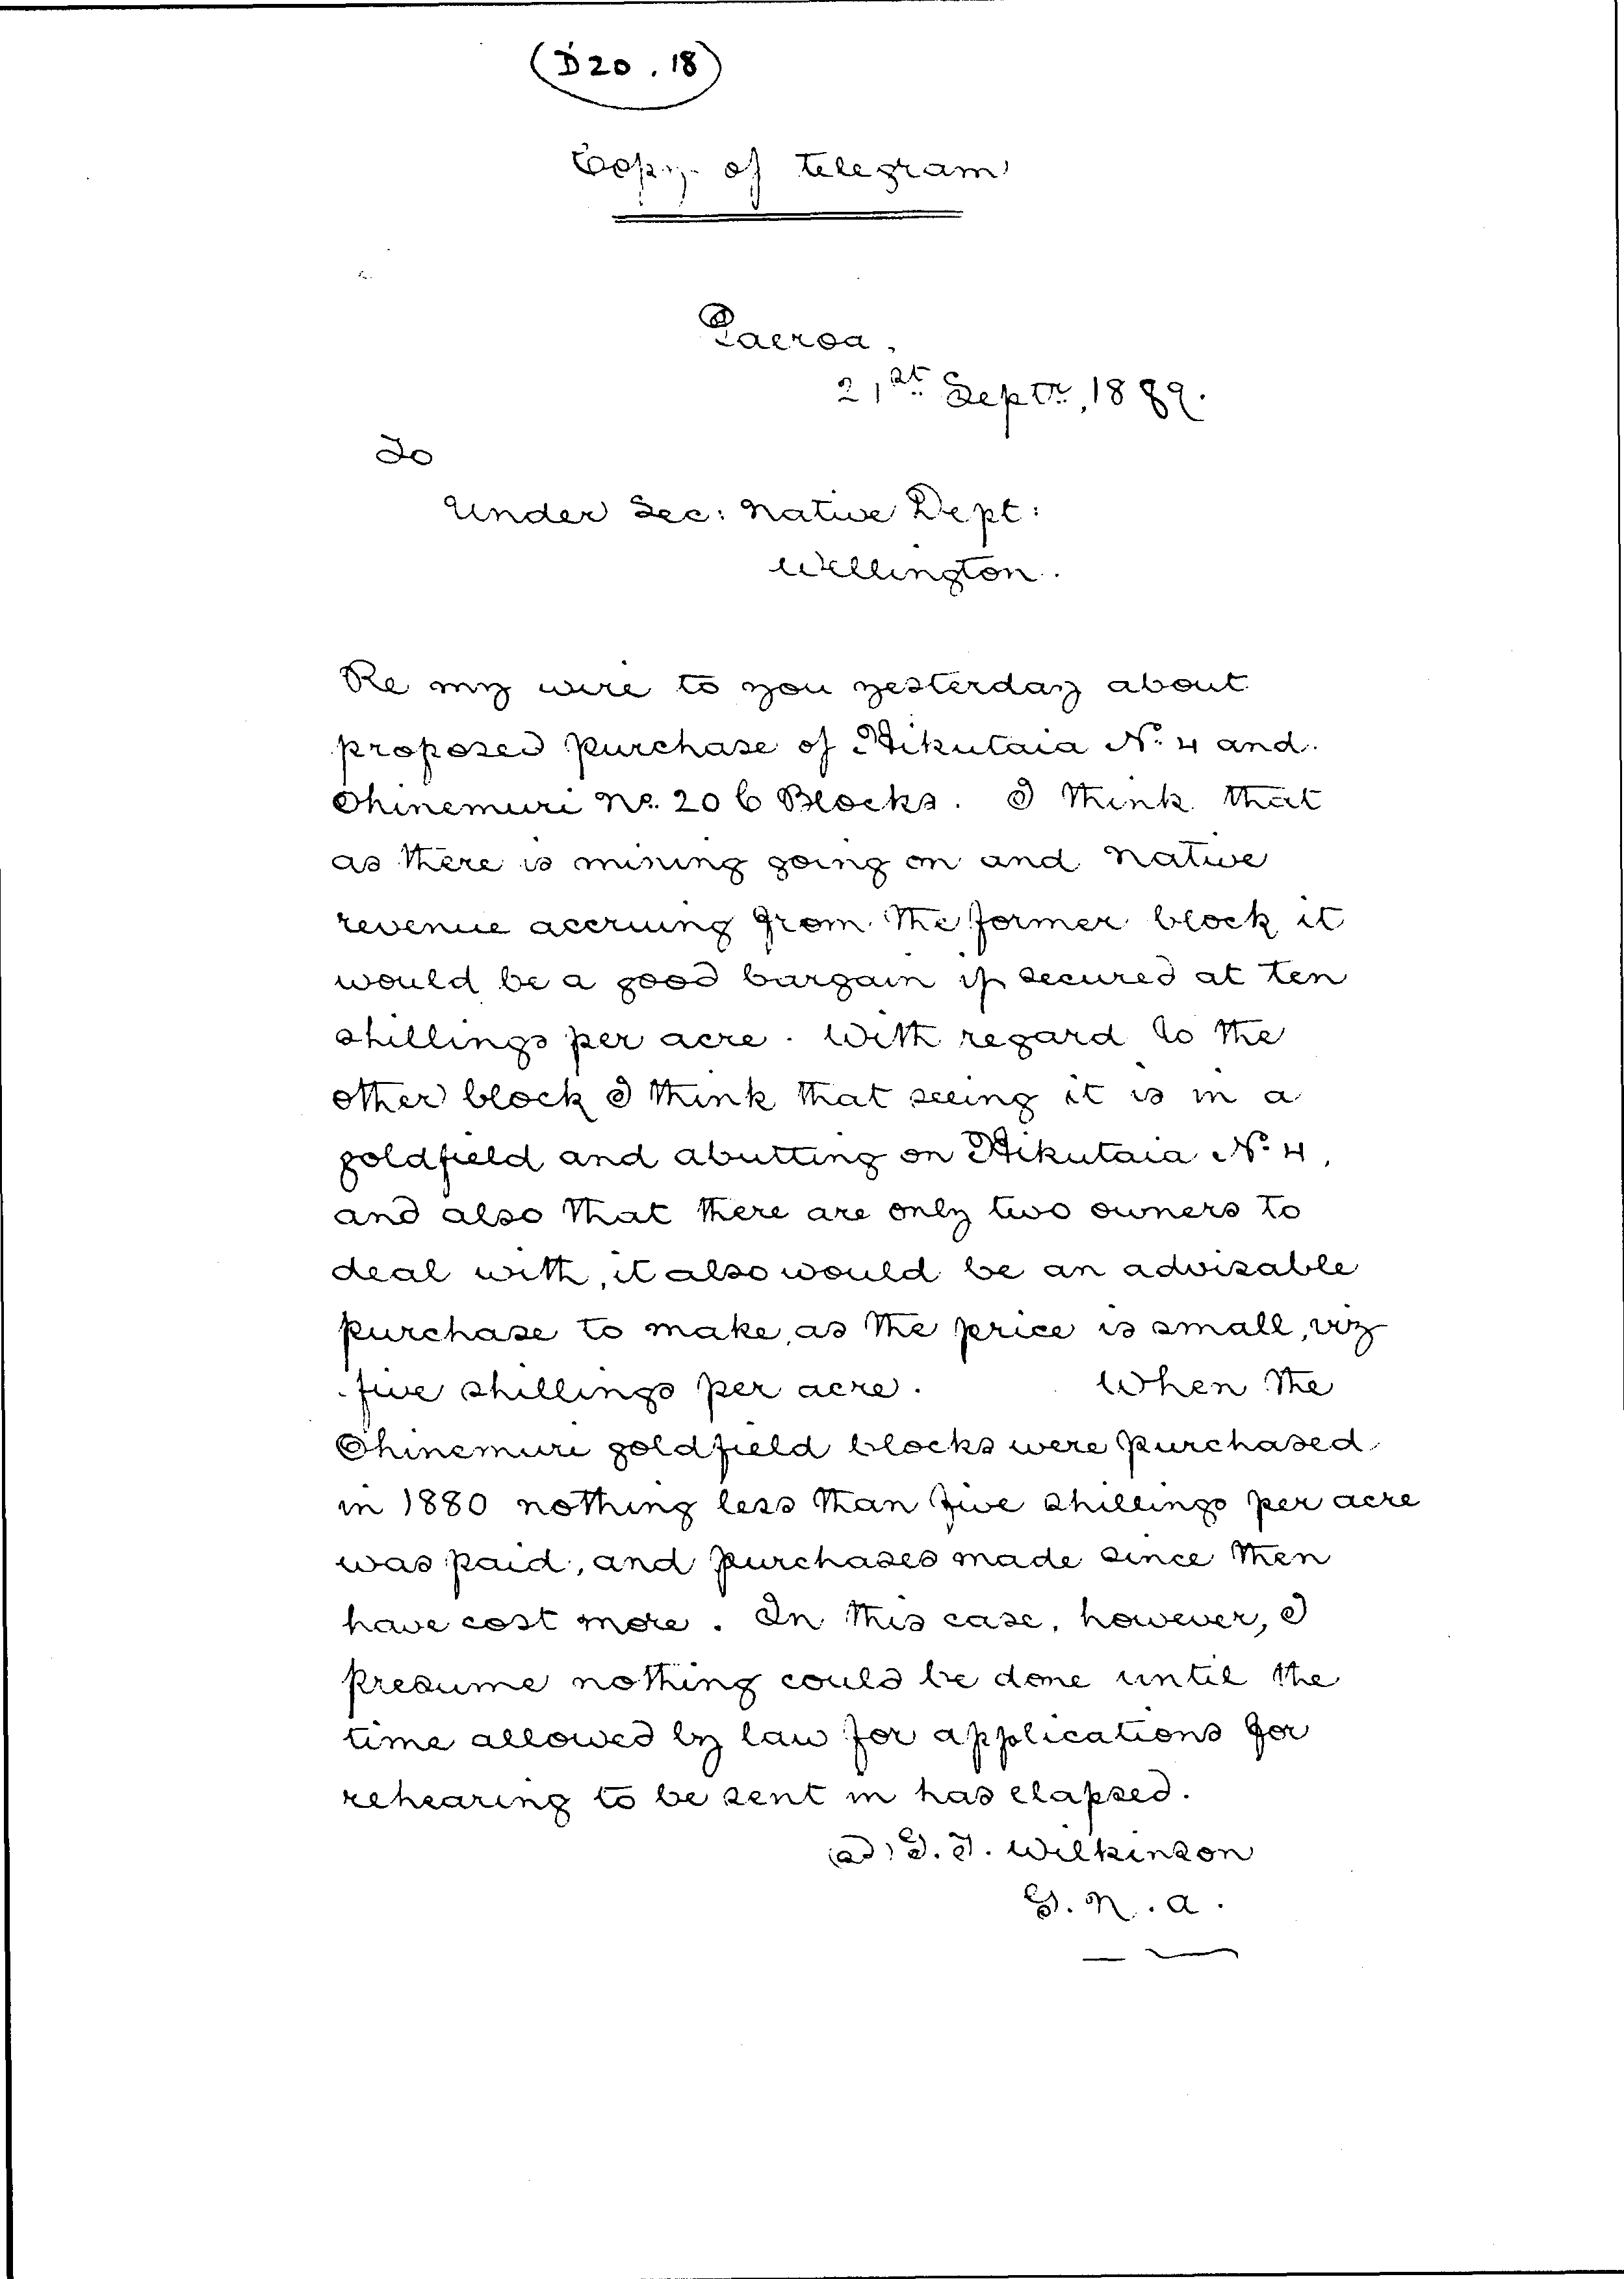 (D20.18)
Copy of telegram
Paeroa,
21st Septr, 1889.
To
Under Sec: Native Dept:
Wellington.
Re my wire to you yesterday about
proposed purchase of Hikutaia No. 4 and
Ohinemuri No. 20 C Blocks. I think that
as there is mining going on and native
revenue accruing from the former block it
would be a good bargain if secured at ten
shillings per acre. With regard to the
other block I think that seeing it is in a
goldfield and abutting on Hikutaia No. 4,
and also that there are only two owners to
deal with, it also would be an advisable
purchase to make, as the price is small, viz
five shillings per acre. When the
Ohinemuri goldfield blocks were purchased
in 1880 nothing less than five shillings per acre
was paid, and purchases made since then
have cost more. In this case, however, I
presume nothing could be done until the
time allowed by law for applications for
rehearing to be sent in has elapsed.
(sd) G. T. Wilkinson
G. N. A.